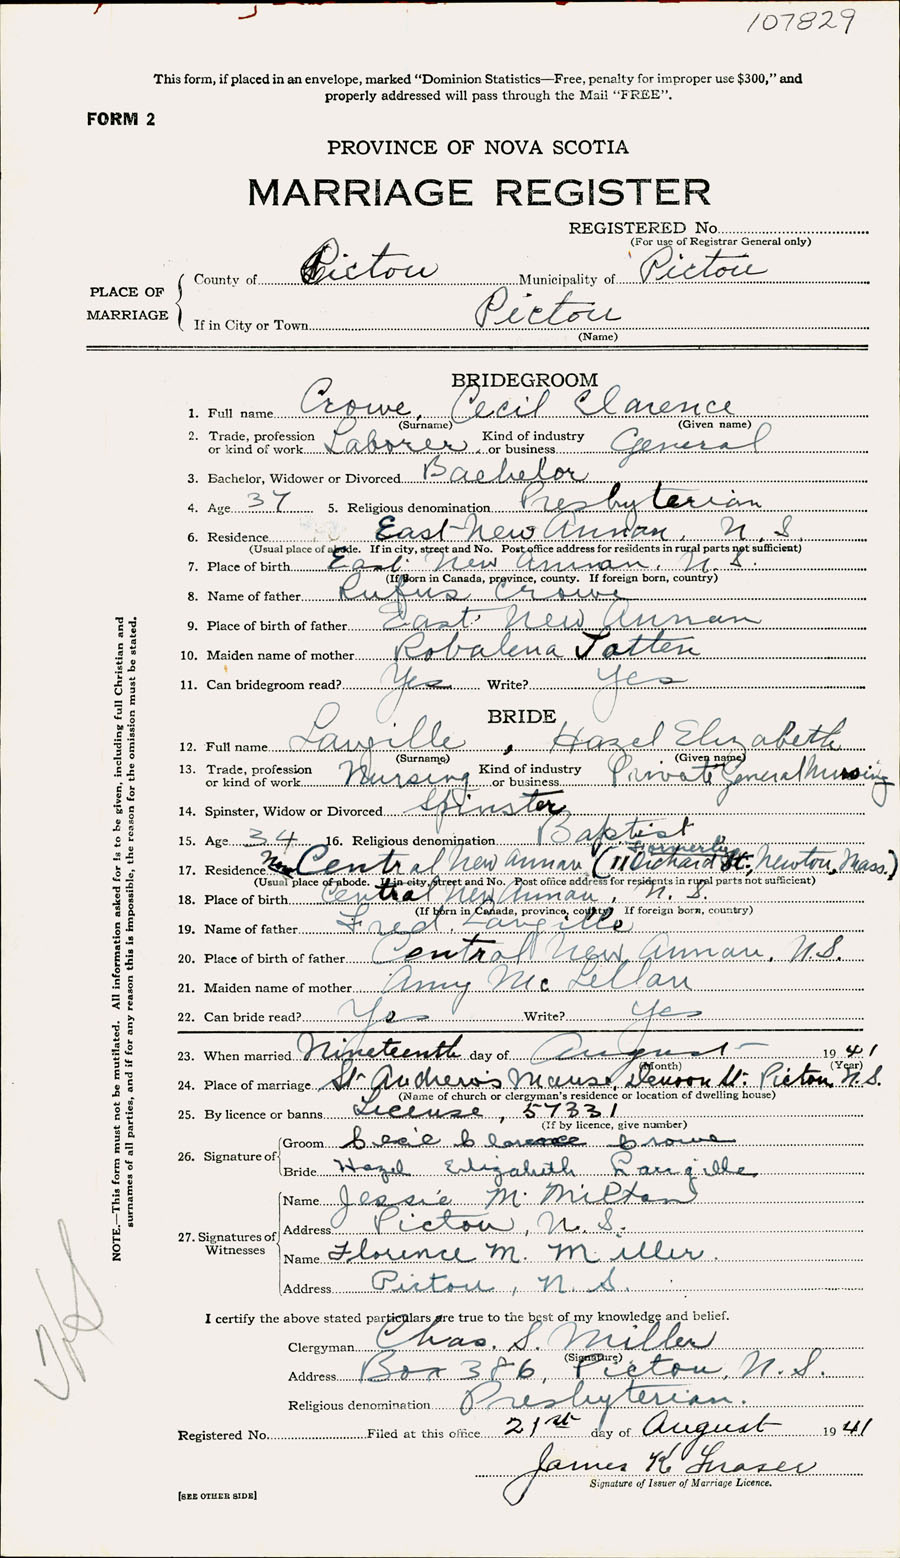 107829
This form, if placed in an envelope, marked "Dominion Statistics—Free, penalty for improper use $300," and
properly addressed will pass through the Mail "FREE".
FORM 2
PROVINCE OF NOVA SCOTIA
MARRIAGE REGISTER
REGISTERED No.
(For use of Registrar General only)
PLACE OF MARRIAGE
County of Pictou Municipality of Pictou
If in City or Town Pictou
(Name)
BRIDEGROOM
1. Full name Crowe, Cecil Clarence
(Surname) (Given name)
2. Trade, profession or kind of work Laborer Kind of industry or business General
3. Bachelor, Widower or Divorced Bachelor
4. Age 37 5. Religious denomination Presbyterian
6. Residence East New Annan, N.S.
(Usual place of abode. If in city, street and No. Post office address for residents in rural parts not sufficient)
7. Place of birth East New Annan, N.S.
(If born in Canada, province, county. If foreign born, country)
8. Name of father Rufus Crowe
9. Place of birth of father East New Annan
10. Maiden name of mother Robalena Tatten
11. Can bridegroom read? Yes Write? Yes
BRIDE
12. Full name Langille, Hazel Elizabeth
(Surname) (Given name)
13. Trade, profession or kind of work Nursing Kind of industry or business Private General Nursing
14. Spinster, Widow or Divorced Spinster
15. Age 34 16. Religious denomination Baptist
formerly
17. Residence Now Central New Annan (11 Orchard St., Newton, Mass.)
(Usual place of abode. If in city, street and No. Post office address for residents in rural parts not sufficient)
18. Place of birth Central New Annan, N.S.
(If born in Canada, province, county. If foreign born, country)
19. Name of father Fred Langille
20. Place of birth of father Central New Annan, N.S.
21. Maiden name of mother Amy McLellan
22. Can bride read? Yes Write? Yes
23. When married Nineteenth day of August 1941
(Month) (Year)
24. Place of marriage St. Andrew's Manse, Denoon St. Pictou, N.S.
(Name of church or clergyman's residence or location of dwelling house)
25. By licence or banns License, 57331
(If by licence, give number)
26. Signature of
Groom Cecil Clarence Crowe
Bride Hazel Elizabeth Langille
27. Signatures of Witnesses
Name Jessie M. Milton
Address Pictou, N.S.
Name Florence M. Miller.
Address Pictou, N.S.
I certify the above stated particulars are true to the best of my knowledge and belief.
Clergyman Chas. S. Miller
(Signature)
Address Box 386, Pictou, N.S.
Religious denomination Presbyterian.
Registered No. Filed at this office 21st day of August 1941
James K Fraser
Signature of Issuer of Marriage Licence.
[SEE OTHER SIDE]
NOTE.—This form must not be mutilated. All information asked for is to be given, including full Christian and
surnames of all parties, and if for any reason this is impossible, the reason for the omission must be stated.